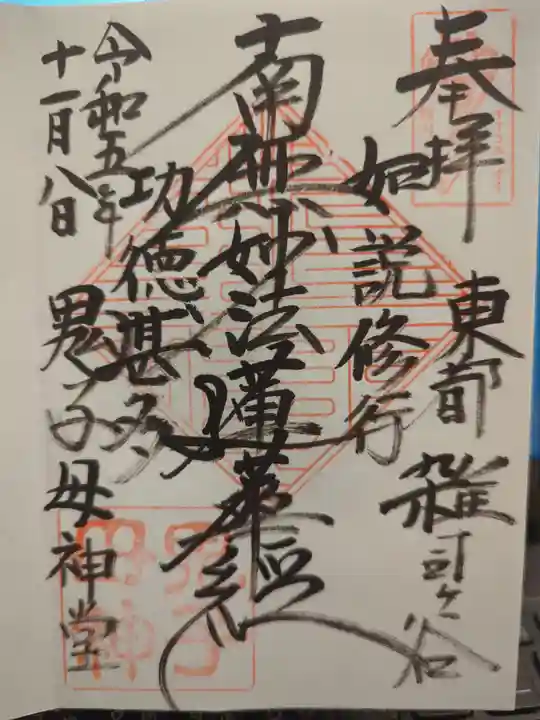 奉拝
東都 雑司ヶ谷
如説修行
南無妙法蓮華經
功徳甚多
令和五年
十一月八日
鬼子母神堂